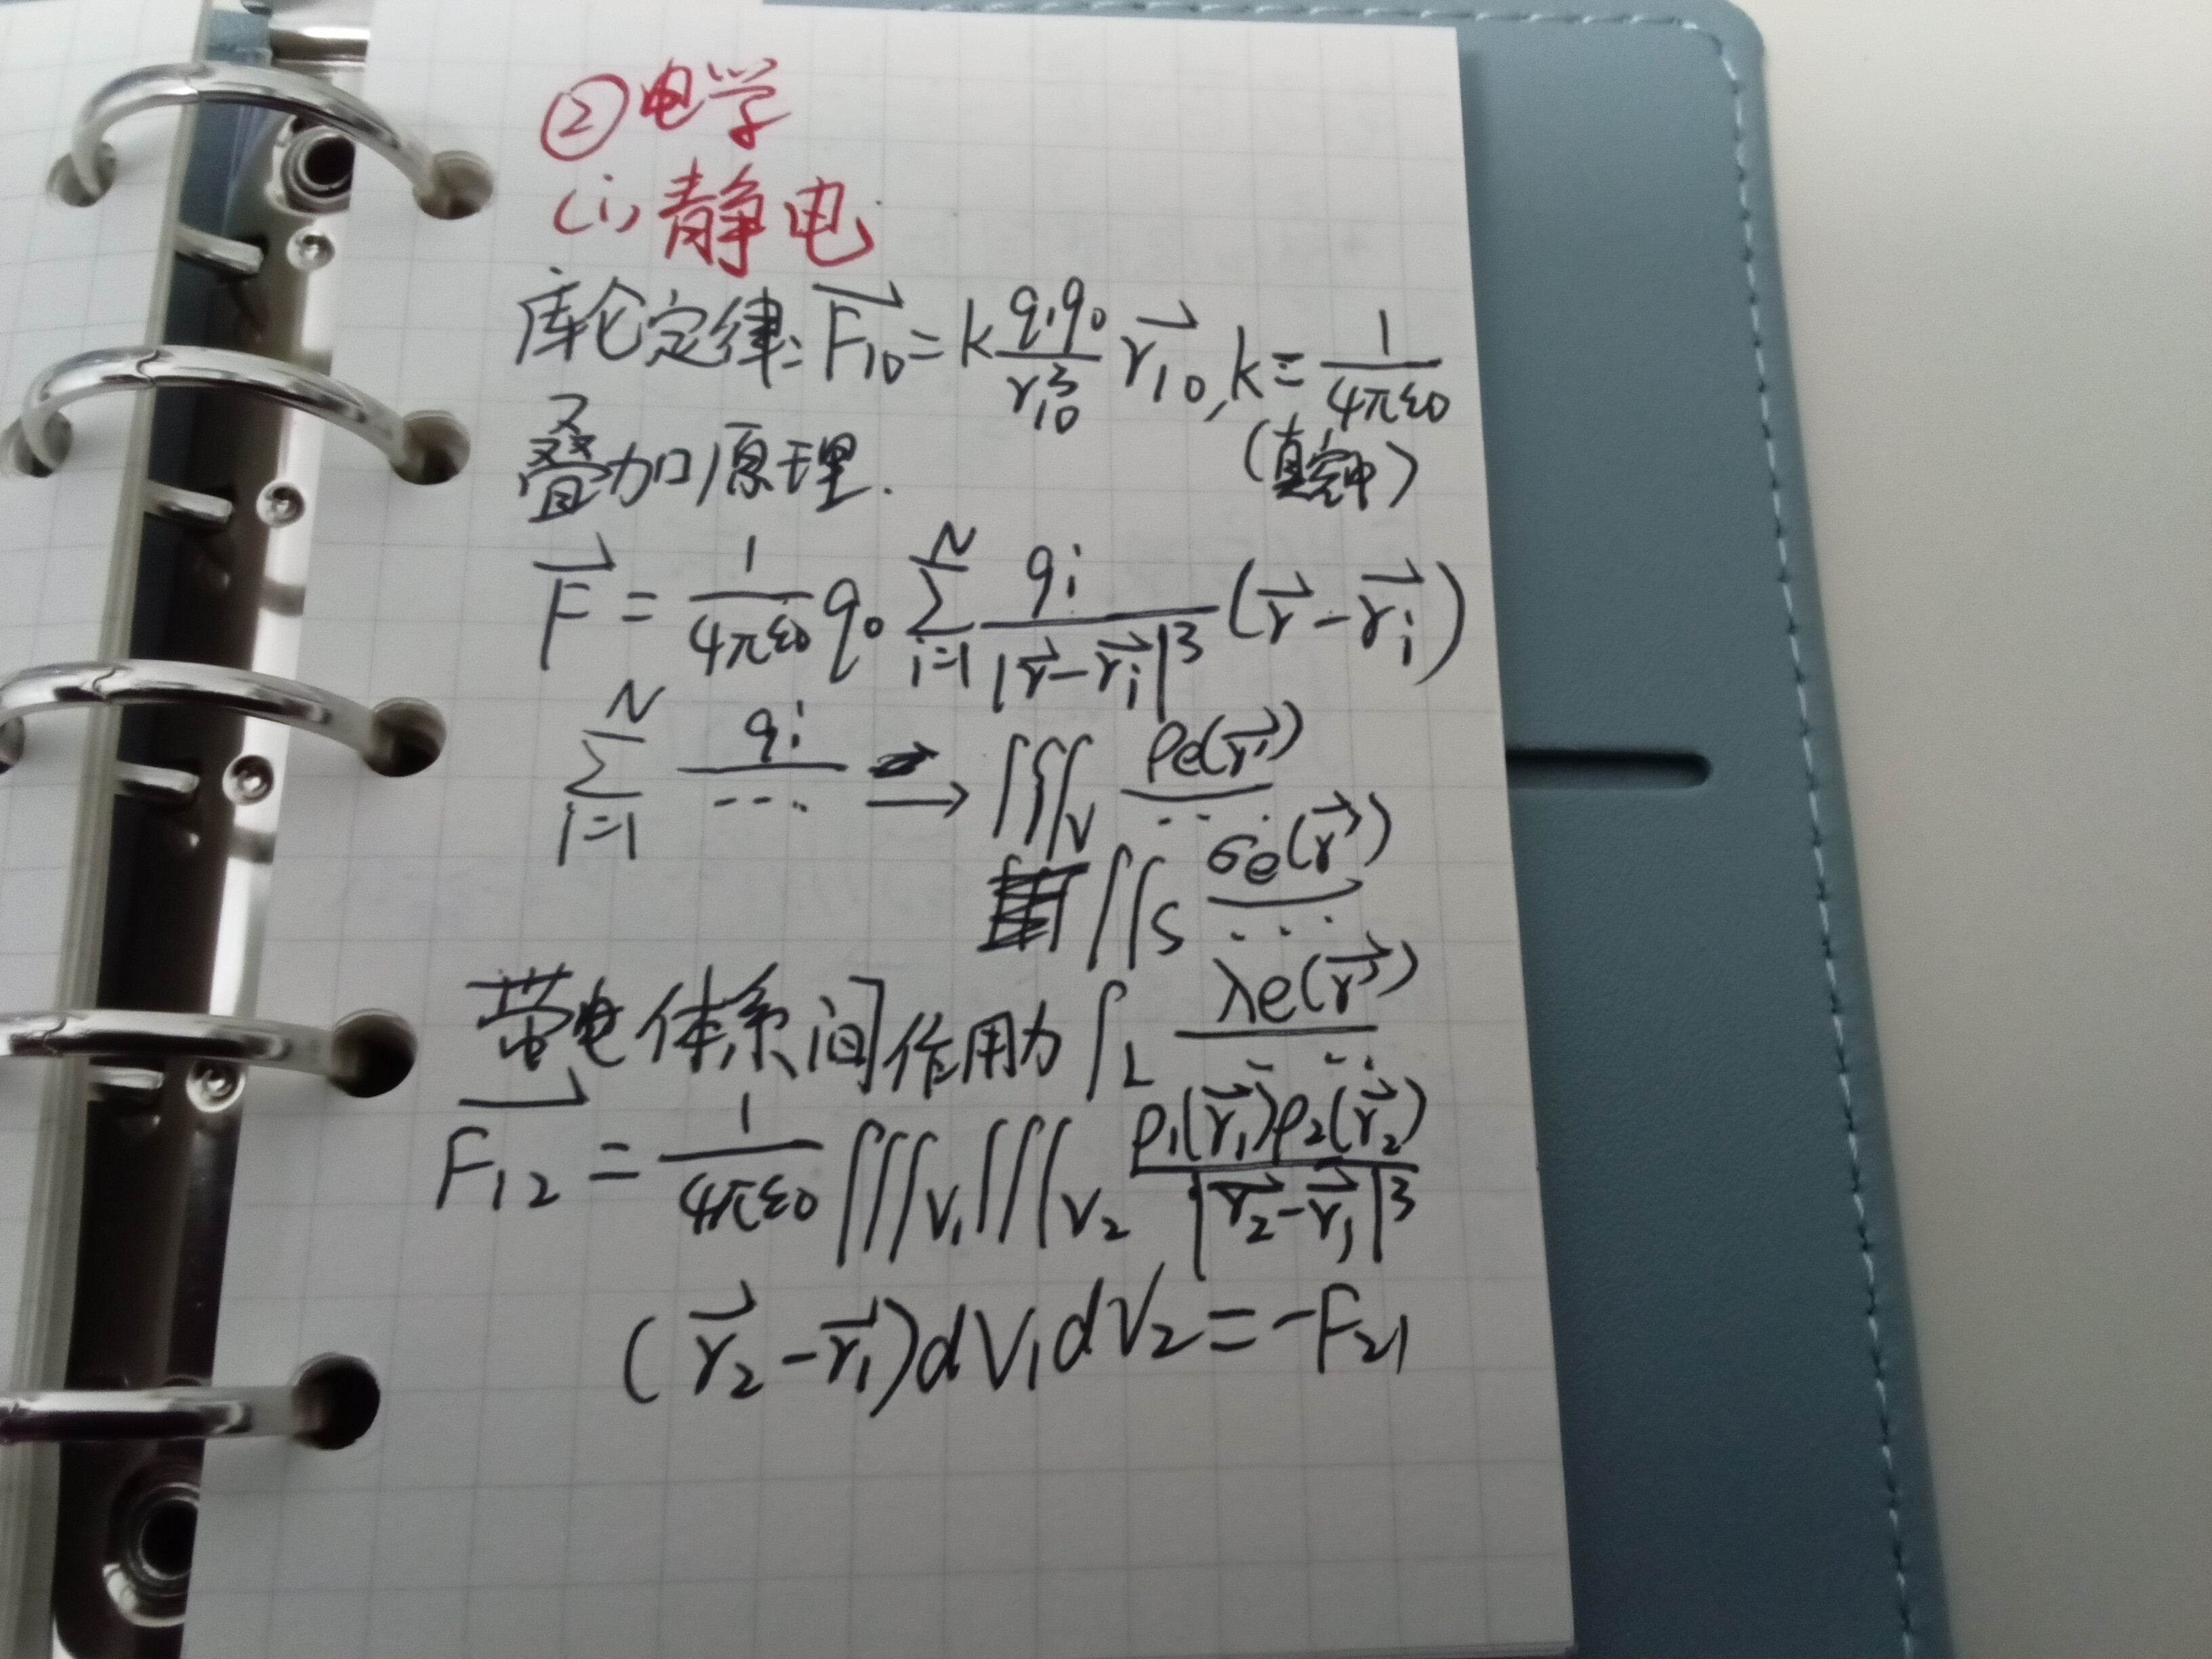 ②电学
(i)静电
库仑定律: $\vec{F_{10}} = k\frac{q_1q_0}{r_{10}^3}\vec{r_{10}}, k = \frac{1}{4\pi\varepsilon_0}$
叠加原理. (真空中)
$\vec{F} = \frac{1}{4\pi\varepsilon_0}q_0\sum_{i=1}^{N}\frac{q_i}{|\vec{r}-\vec{r_i}|^3}(\vec{r}-\vec{r_i})$
$\sum_{i=1}^{N}\frac{q_i}{\cdots} \longrightarrow \iiint_V\frac{\rho_e(\vec{r'})}{\cdots}$
$\iint_S\frac{\sigma_e(\vec{r'})}{\cdots}$
带电体系间作用力 $\int_L\frac{\lambda_e(\vec{r'})}{\cdots}$
$\vec{F_{12}} = \frac{1}{4\pi\varepsilon_0}\iiint_{V_1}\iiint_{V_2}\frac{\rho_1(\vec{r_1})\rho_2(\vec{r_2})}{|\vec{r_2}-\vec{r_1}|^3}$
$(\vec{r_2}-\vec{r_1})dV_1dV_2 = -F_{21}$